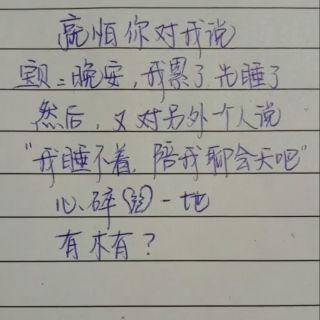 怕你对我说
宝贝：晚安，我累了先睡了
然后，又对另外个人说
“我睡不着，陪我聊会天吧”
心碎一地
有木有？